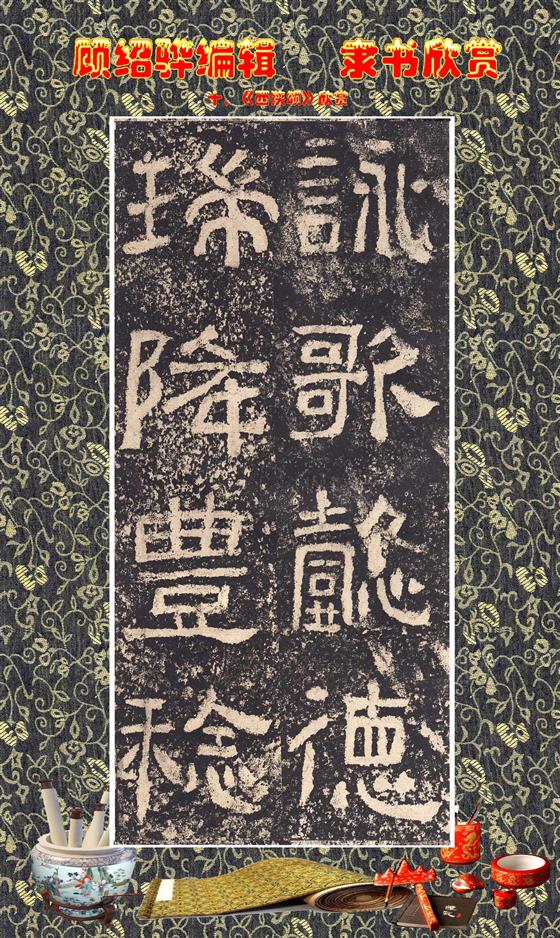 顾绍骅编辑 隶书欣赏
十、《西狭颂》欣赏
詠歌懿德
瑞降豐稔